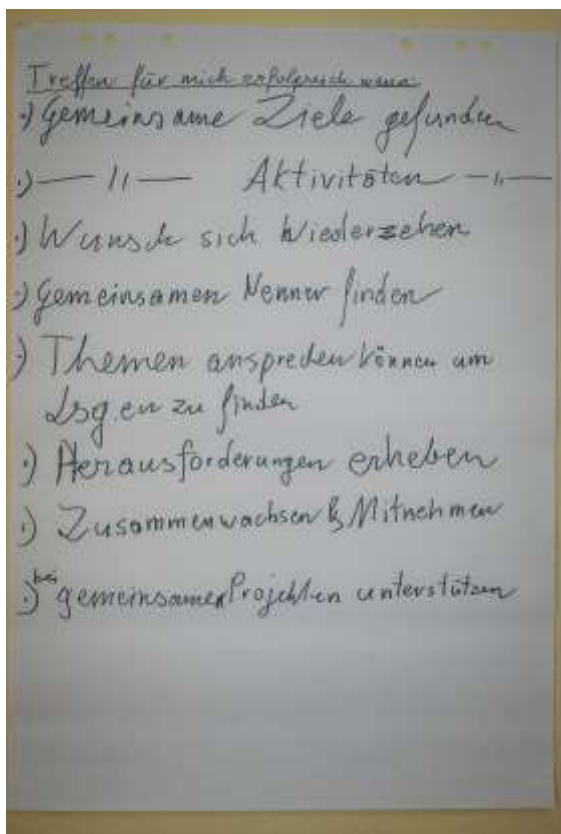 Treffen für mich erfolgreich wenn:
·) Gemeinsame Ziele gefunden
·) — 〃 — Aktivitäten — 〃 —
·) Wunsch sich Wiederzehen
·) Gemeinsamen Nenner finden
·) Themen ansprechen können um
Lsg.en zu finden
·) Herausforderungen erheben
·) Zusammenwachsen & Mitnehmen
·) bei gemeinsamen Projekten unterstützen